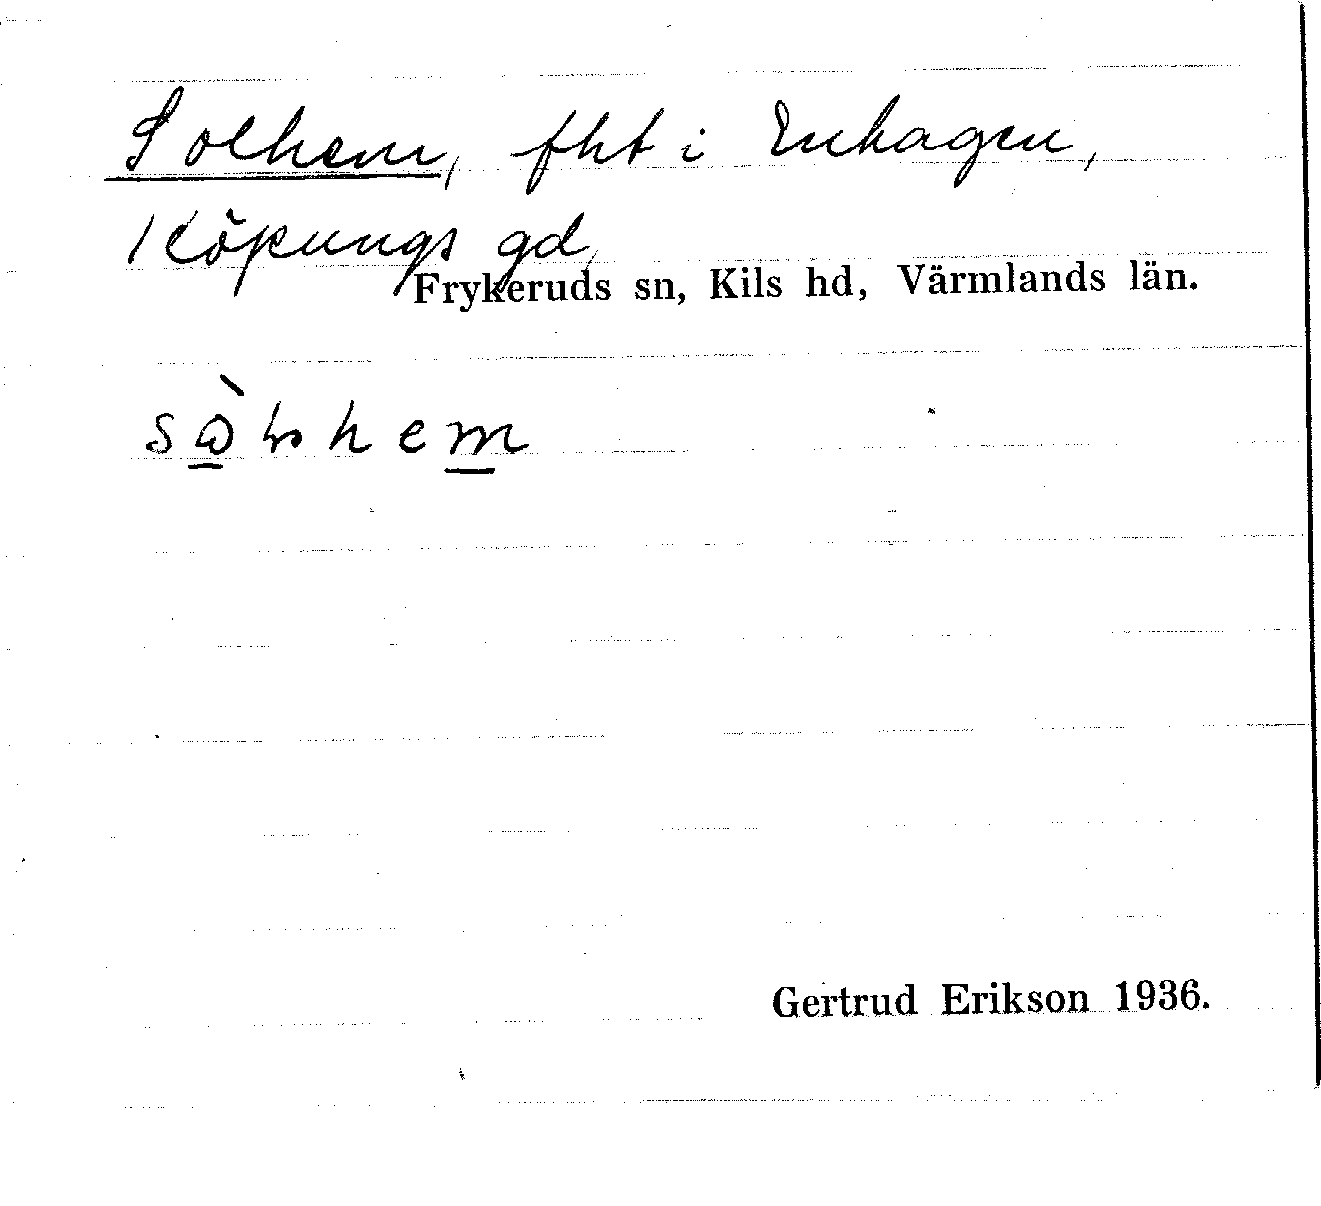 Solhem, fht i Enhagen,
Köpungs gd,
Frykeruds sn, Kils hd, Värmlands län.
Gertrud Erikson 1936.